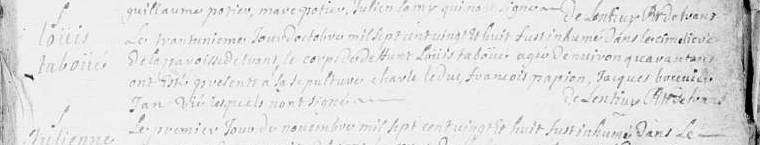 guillaume potier, marc potier, Julien lamy qui na signe
f
Louis
taboüé
Le trantunieme Jour doctobre mil sept cent vingt et huit fust inhumé dans le cimetiere
de la paroisse devant le corps de defunt Loüis taboüe agé denviron quarant ans
ont esté present a la sepulture charle leduc, francois papion, Jacques
Jan lesquels nont signé
f
Julienne
Le premier Jour de novembre mil sept cent vingt et huit fust inhumé dans Le